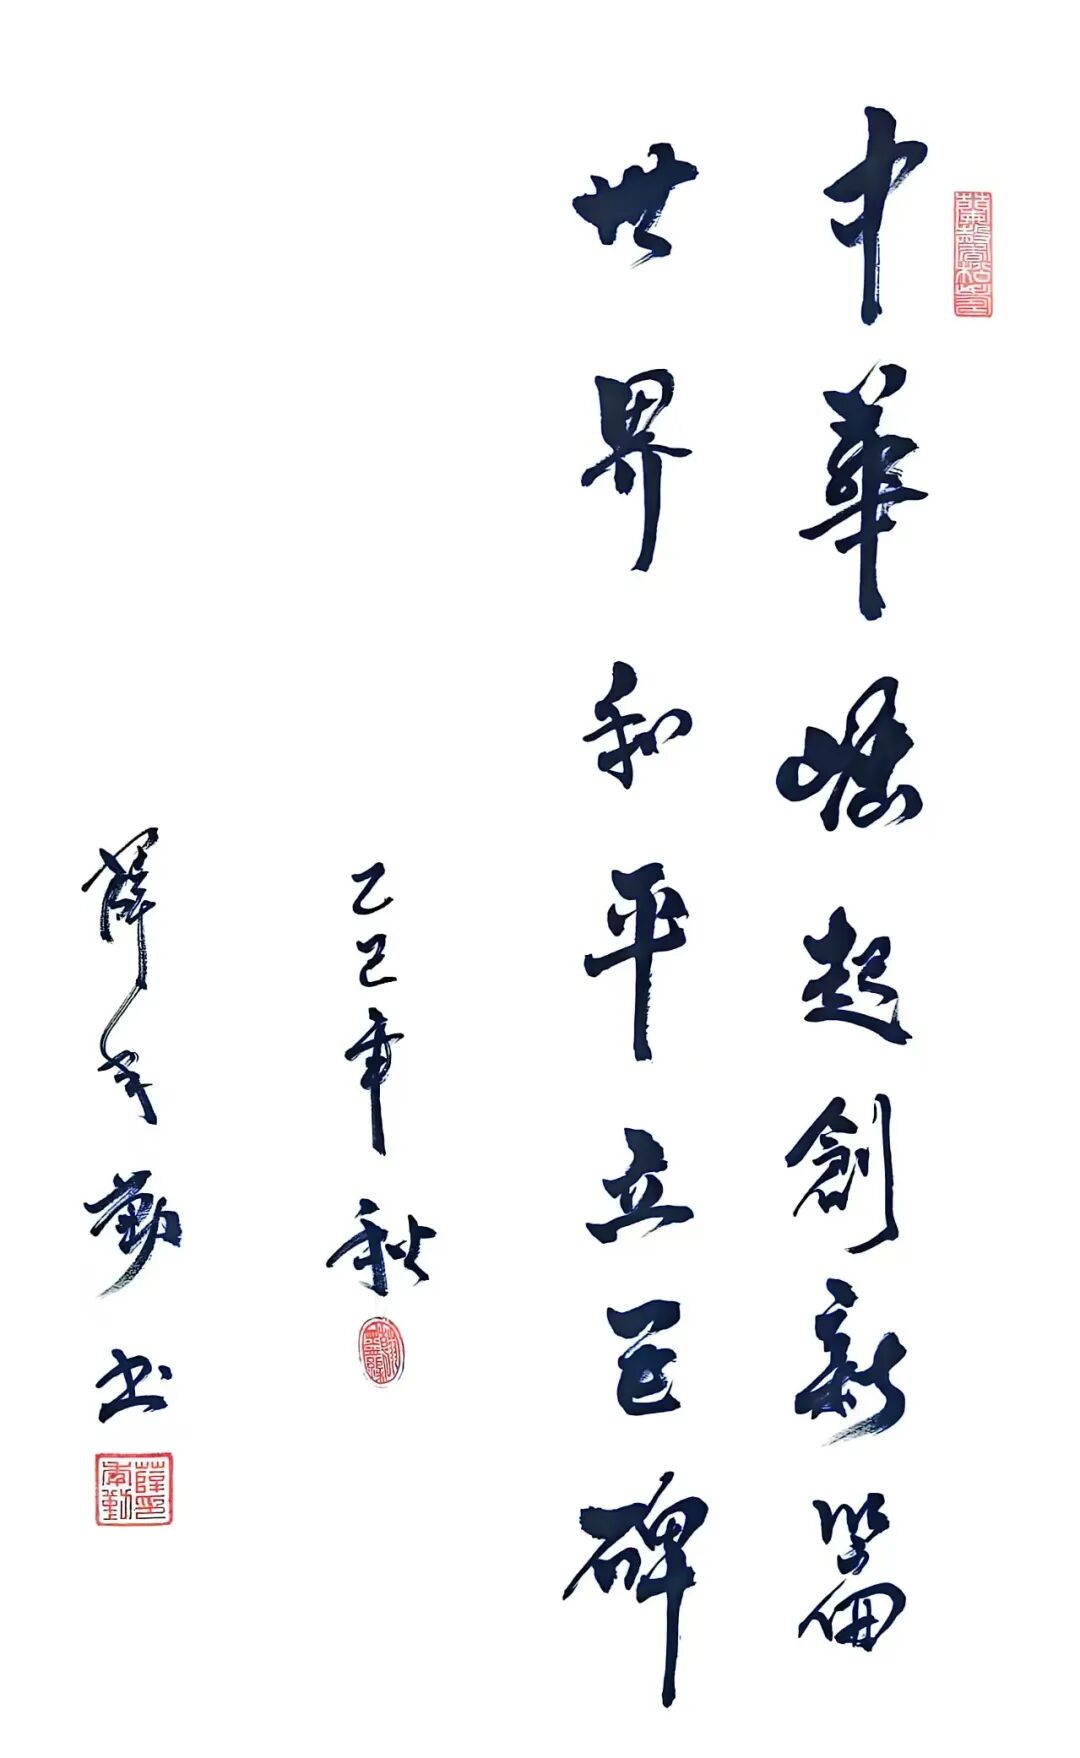 中華崛起創新篇
世界和平立巨碑
乙巳年秋
薛 勤书